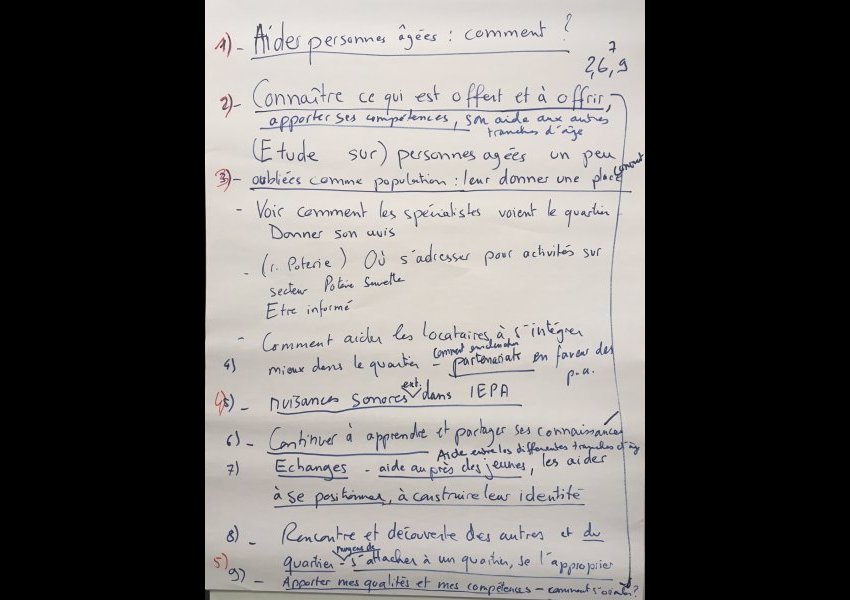 1) - Aider personnes âgées : comment ?
7
2,6,9
2) - Connaître ce qui est offert et à offrir,
apporter ses compétences, son aide aux autres
tranches d'âge
(Etude sur) personnes agées un peu
3) - oubliées comme population : leur donner une place comment
- Voir comment les spécialistes voient le quartier
Donner son avis
- (r. Poterie) Où s'adresser pour activités sur
secteur Poterie
Etre informé
- Comment aider les locataires à s'intégrer
4) mieux dans le quartier - comment partenariats en faveur des
p.a.
5) - nuisances sonores ext. dans IEPA
6) - Continuer à apprendre et partager ses connaissances
Aide entre les différentes tranches d'âg
7) Echanges - aide auprès des jeunes, les aider
à se positionner, à construire leur identité
8) - Rencontre et découverte des autres et du
quartier - moyens de s'attacher à un quartier, se l'approprier
5)
9) - Apporter mes qualités et mes compétences - comment ?